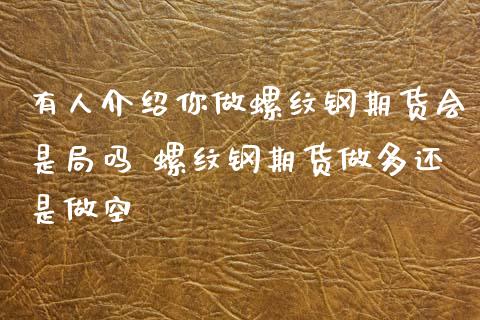 有人介绍你做螺纹钢期货会
是局吗 螺纹钢期货做多还
是做空